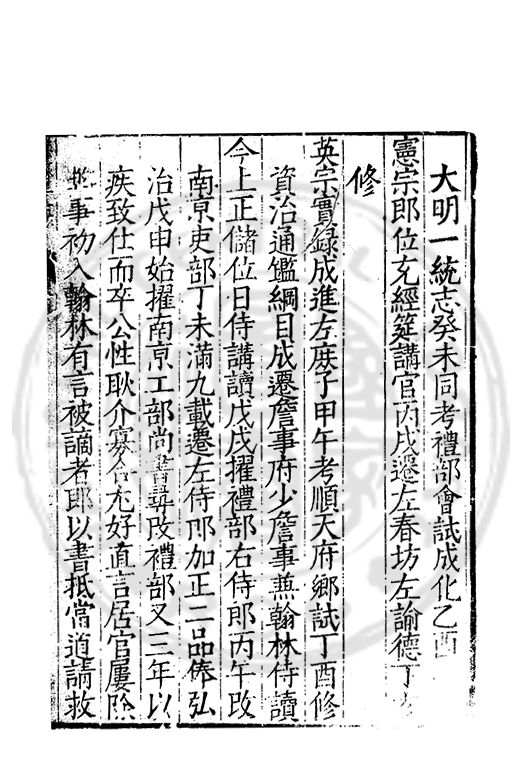 大明一統志癸未同考禮部會試成化乙酉
憲宗即位充經筵講官丙戌遷左春坊左諭德丁
修
英宗實錄成進左庶子甲午考順天府鄉試丁酉修
資治通鑑綱目成遷詹事府少詹事兼翰林侍讀
今上正儲位日侍講讀戊戌擢禮部右侍郎丙午改
南京吏部丁未滿九載遷左侍郎加正二品俸弘
治戊申始擢南京工部尚書尋改禮部又三年以
疾致仕而卒公性耿介寡合尤好直言居官屢陳
事初入翰林有言被謫者即以書抵當道請救